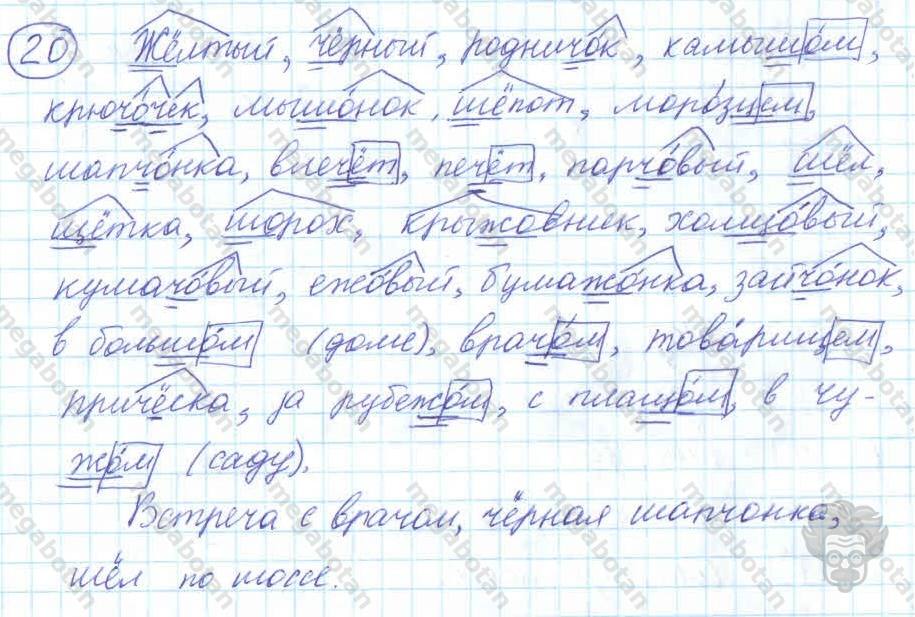 20 Жёлтый, чёрный, родничок, камышом,
крючочек, мышонок, шёпот, морозцем,
шапчонка, влечёт, печёт, парчовый, шёл,
щётка, шорох, крыжовник, холщовый,
кумачовый, ежовый, бумажонка, зайчонок,
в большом (доме), врачом, товарищем,
причёска, за рубежом, с плащом, в чу-
жом (саду).
Встреча с врачом, чёрная шапчонка,
шёл по шоссе.
megabotan